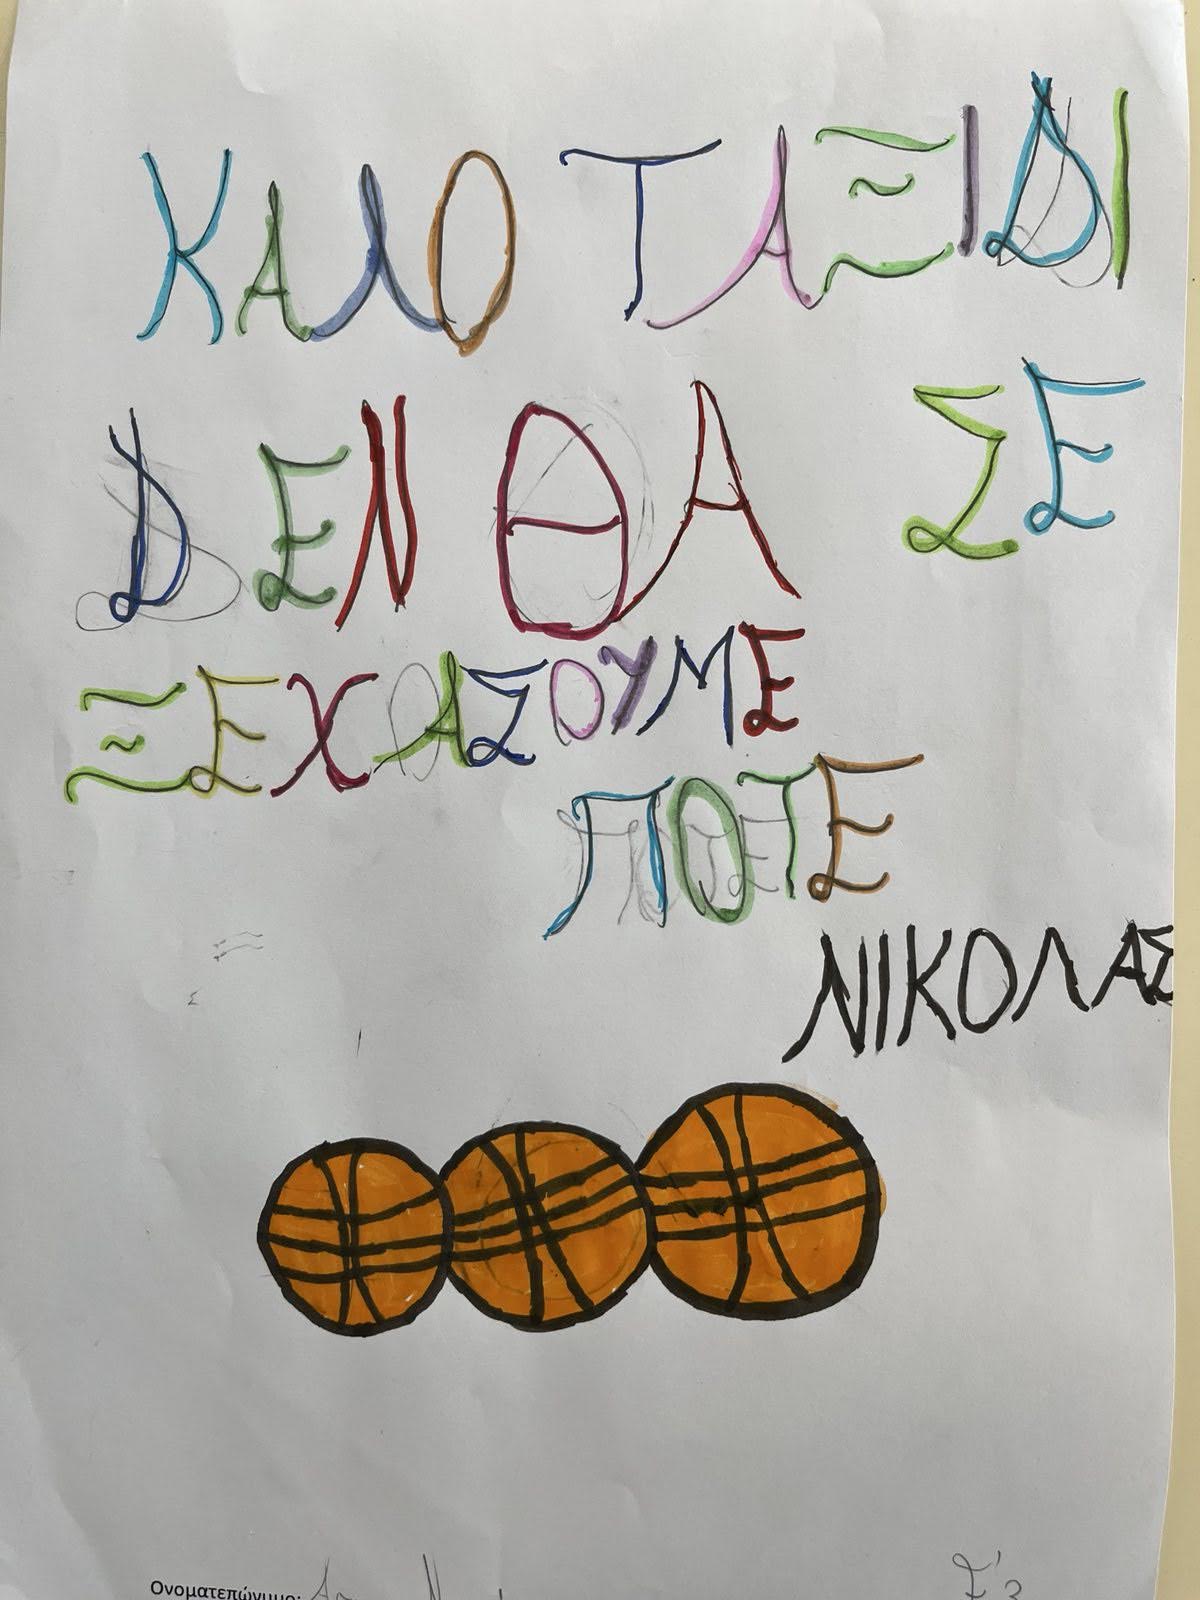 ΚΑΛΟ ΤΑΞΙΔΙ
ΔΕΝ ΘΑ ΣΕ
ΞΕΧΑΣΟΥΜΕ
ΠΟΤΕ
ΝΙΚΟΛΑΣ
Ονοματεπώνυμο: